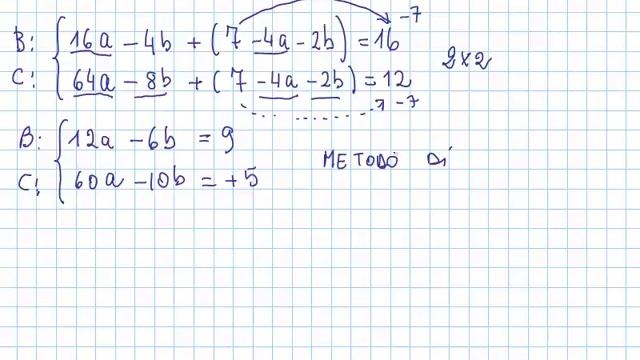 -7
B: { 16a - 4b + (7 - 4a - 2b) = 16
C: { 64a - 8b + (7 - 4a - 2b) = 12
2x2
-7
B: { 12a - 6b = 9
C: { 60a - 10b = +5
METODO Di